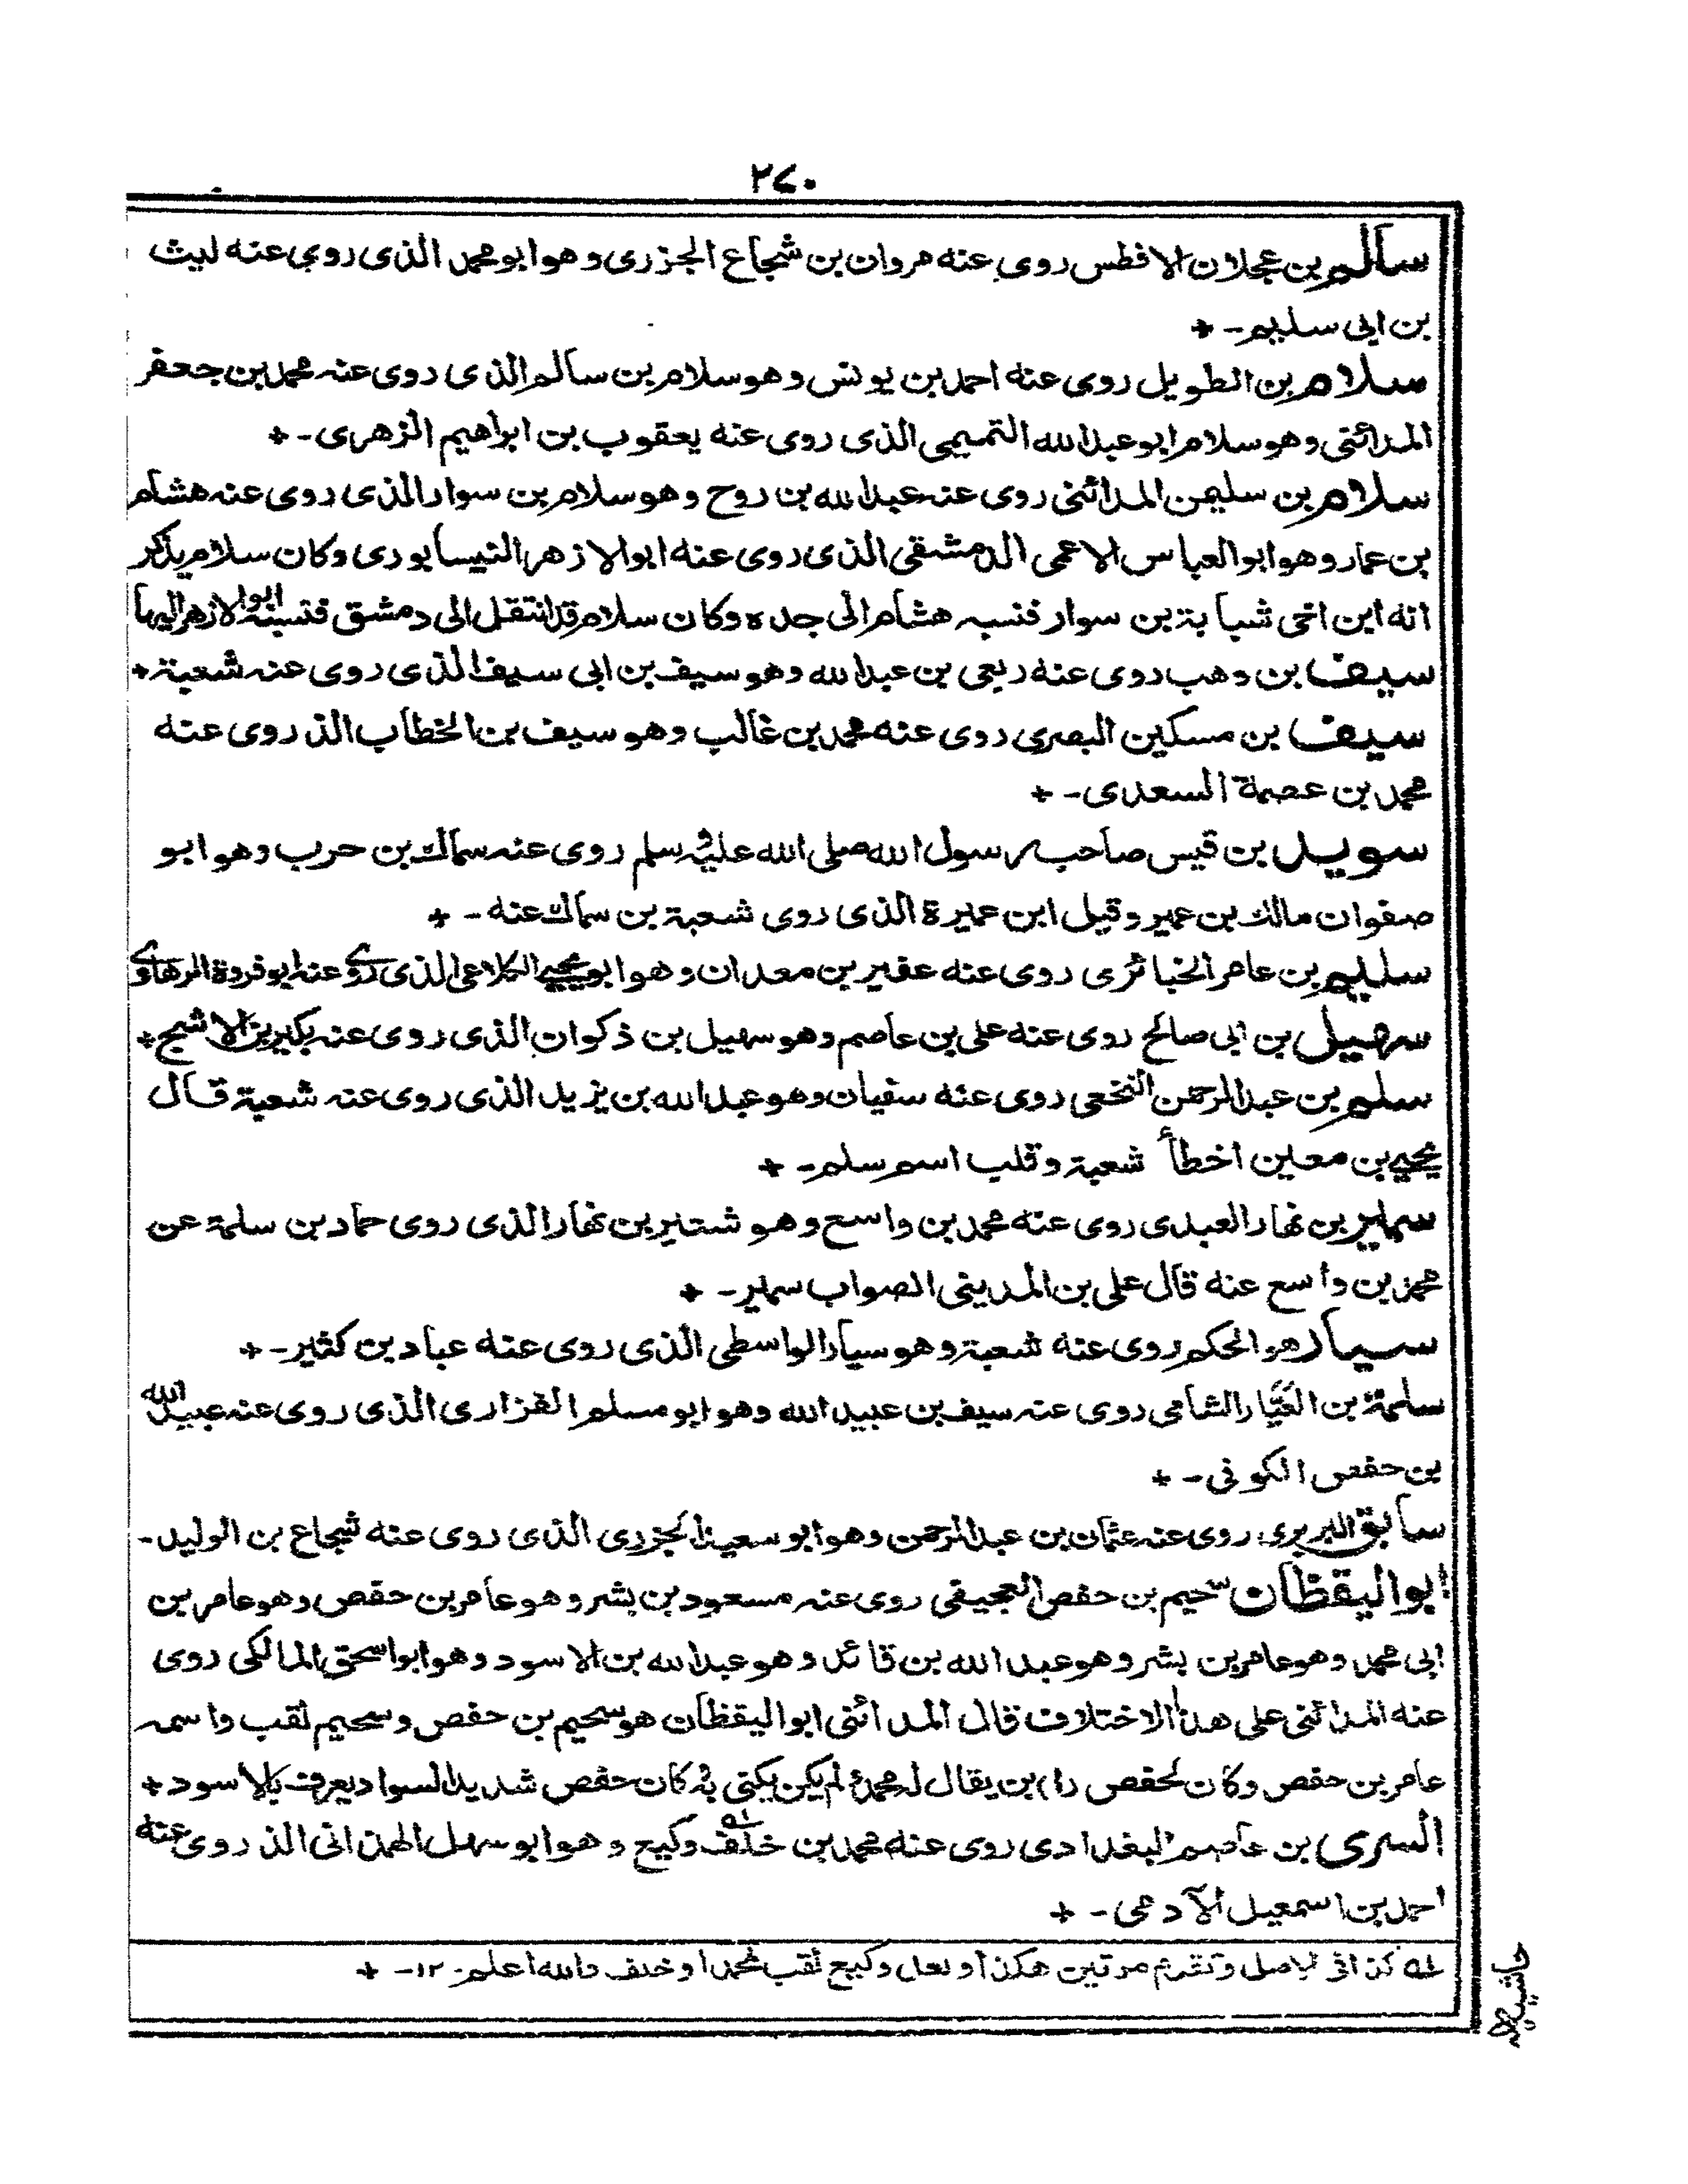 ٢٧٠
سالم بن عجلان الافطس روى عنه مروان بن شجاع الجزرى وهو ابو محمد الذى روى عنه ليث
بن ابى سليم -+
سلام بن الطويل روى عنه احمد بن يونس وهو سلام بن سالم الذى روى عنه محمد بن جعفر
المدائنى وهو سلام ابو عبد الله التميمى الذى روى عنه يعقوب بن ابراهيم الزهرى -+
سلام بن سليمن المدائنى روى عنه عبد الله بن روح وهو سلام بن سوار الذى روى عنه هشام
بن عمار وهو ابو العباس الاعمى الدمشقى الذى روى عنه ابو الازهر النيسابورى وكان سلام يذكر
انه ابن اخى شبابة بن سوار فنسبه هشام الى جده وكان سلام قد انتقل الى دمشق فنسبه ابو الازهر اليها
سيف بن وهب روى عنه ربعى بن عبد الله وهو سيف بن ابى سيف الذى روى عنه شعبة+
سيف بن مسكين البصرى روى عنه محمد بن غالب وهو سيف بن الخطاب الذ روى عنه
محمد بن عصمة السعدى -+
سويد بن قيس صاحب رسول الله صلى الله عليه وسلم روى عنه سماك بن حرب وهو ابو
صفوان مالك بن عمير وقيل ابن عميرة الذى روى شعبة بن سماك عنه -+
سليم بن عامر الخبائرى روى عنه عفير بن معدان وهو ابو يحيى الكلاعى الذى روى عنه ابو فروة الرهاوى
سهيل بن ابى صالح روى عنه على بن عاصم وهو سهيل بن ذكوان الذى روى عنه بكير بن الاشج+
سلم بن عبد الرحمن النخعى روى عنه سفيان وهو عبد الله بن يزيد الذى روى عنه شعبة قال
يحيى بن معين اخطأ شعبة وقلب اسم سلم -+
سمير بن نهار العبدى روى عنه محمد بن واسع وهو شتير بن نهار الذى روى حماد بن سلمة عن
محمد بن واسع عنه قال على بن المدينى الصواب سمير -+
سيار هو الحكم روى عنه شعبة وهو سيار الواسطى الذى روى عنه عباد بن كثير -+
سلمة بن العيار الشامى روى عنه سيف بن عبيد الله وهو ابو مسلم الفزارى الذى روى عنه عبيد الله
بن حفص الكوفى -+
سابق البربرى روى عنه عثمان بن عبد الرحمن وهو ابو سعيد الجزرى الذى روى عنه شجاع بن الوليد-
ابو اليقظان سحيم بن حفص العجيفى روى عنه مسعود بن بشر وهو عامر بن حفص وهو عامر بن
ابى محمد وهو عامر بن بشر وهو عبد الله بن قائد وهو عبد الله بن الاسود وهو ابو اسحق المالكى روى
عنه المدائنى على هذا الاختلاف قال المدائنى ابو اليقظان هو سحيم بن حفص وسحيم لقب واسمه
عامر بن حفص وكان لحفص (ا) بن يقال له محمد لم يكن يكنى به كان حفص شديد السواد يعرف بالاسود+
السرى بن عاصم البغدادى روى عنه محمد بن خلف وكيع وهو ابو سهل الهمدانى الذ روى عنه
احمد بن اسمعيل الآدمى -+
له كذا فى الاصل وتقدم مرتين هكذا ولعل وكيع لقب لمحمد او خلف والله اعلم. ١٢-+
حاشيه